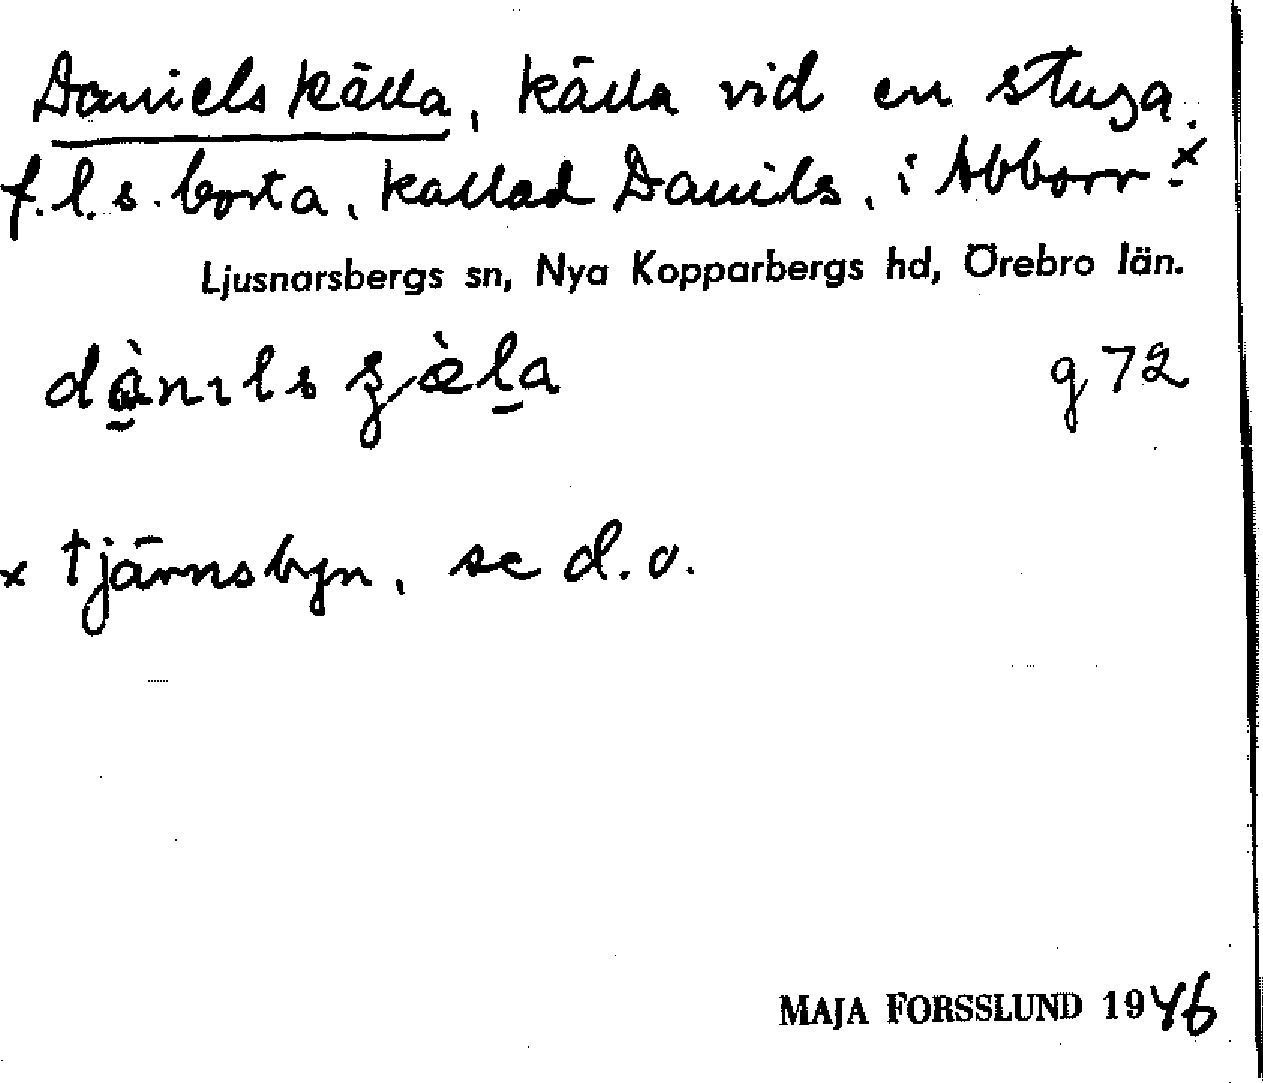 Daniels källa, källa vid en stuga,
f.l.s. borta, kallad Danils, i Abborr-×
Ljusnarsbergs sn, Nya Kopparbergs hd, Örebro län.
g 72
× tjärnsbyn, se d.o.
MAJA FORSSLUND 1946